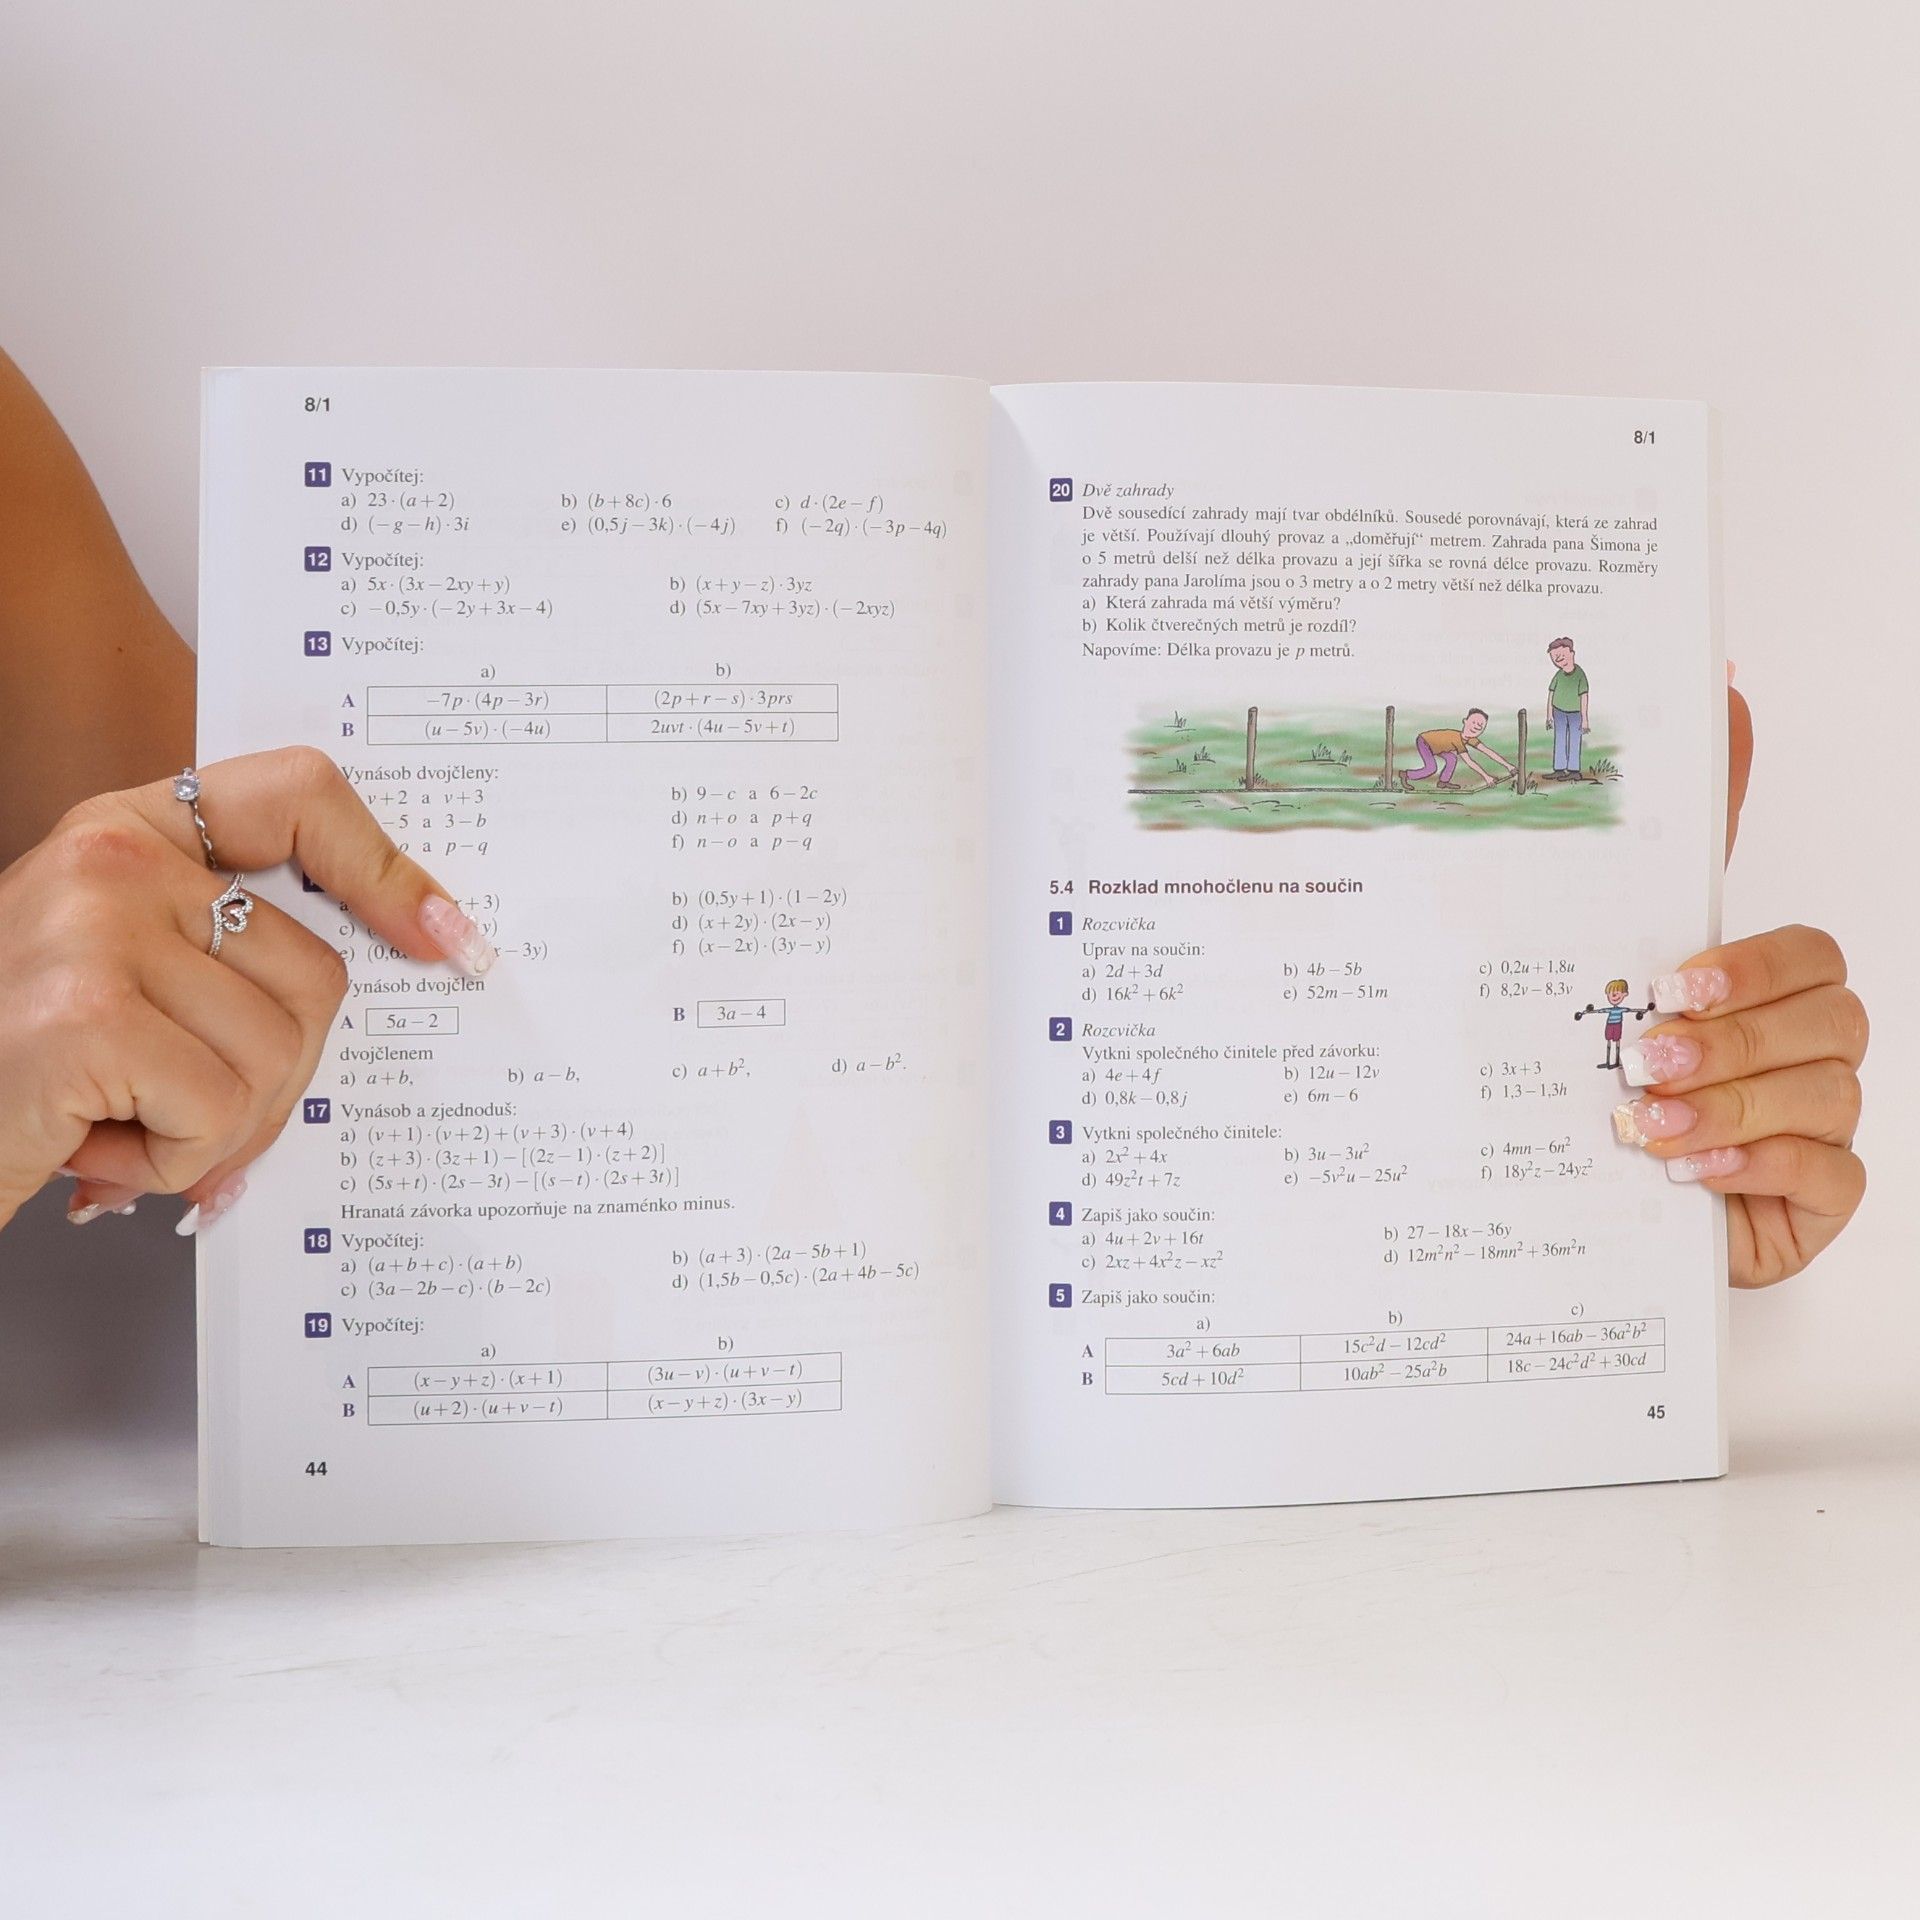 8/1
11 Vypočítej:
a) 23 · (a + 2) b) (b + 8c) · 6 c) d · (2e − f)
d) (− g − h) · 3i e) (0,5j − 3k) · (− 4j) f) (− 2q) · (− 3p − 4q)
12 Vypočítej:
a) 5x · (3x − 2xy + y) b) (x + y − z) · 3yz
c) − 0,5y · (− 2y + 3x − 4) d) (5x − 7xy + 3yz) · (− 2xyz)
13 Vypočítej:
a) b)
A −7p · (4p − 3r) (2p + r − s) · 3prs
B (u − 5v) · (−4u) 2uvt · (4u − 5v + t)
Vynásob dvojčleny:
v + 2 a v + 3 b) 9 − c a 6 − 2c
− 5 a 3 − b d) n + o a p + q
o a p − q f) n − o a p − q
a + 3) b) (0,5y + 1) · (1 − 2y)
c) ( y) d) (x + 2y) · (2x − y)
e) (0,6 x − 3y) f) (x − 2x) · (3y − y)
Vynásob dvojčlen
A 5a − 2 B 3a − 4
dvojčlenem
a) a + b, b) a − b, c) a + b², d) a − b².
17 Vynásob a zjednoduš:
a) (v + 1) · (v + 2) + (v + 3) · (v + 4)
b) (z + 3) · (3z + 1) − [(2z − 1) · (z + 2)]
c) (5s + t) · (2s − 3t) − [(s − t) · (2s + 3t)]
Hranatá závorka upozorňuje na znaménko minus.
18 Vypočítej:
a) (a + b + c) · (a + b) b) (a + 3) · (2a − 5b + 1)
c) (3a − 2b − c) · (b − 2c) d) (1,5b − 0,5c) · (2a + 4b − 5c)
19 Vypočítej:
a) b)
A (x − y + z) · (x + 1) (3u − v) · (u + v − t)
B (u + 2) · (u + v − t) (x − y + z) · (3x − y)
44
8/1
20 Dvě zahrady
Dvě sousedící zahrady mají tvar obdélníků. Sousedé porovnávají, která ze zahrad
je větší. Používají dlouhý provaz a „doměřují“ metrem. Zahrada pana Šimona je
o 5 metrů delší než délka provazu a její šířka se rovná délce provazu. Rozměry
zahrady pana Jarolíma jsou o 3 metry a o 2 metry větší než délka provazu.
a) Která zahrada má větší výměru?
b) Kolik čtverečných metrů je rozdíl?
Napovíme: Délka provazu je p metrů.
5.4 Rozklad mnohočlenu na součin
1 Rozcvička
Uprav na součin:
a) 2d + 3d b) 4b − 5b c) 0,2u + 1,8u
d) 16k² + 6k² e) 52m − 51m f) 8,2v − 8,3v
2 Rozcvička
Vytkni společného činitele před závorku:
a) 4e + 4f b) 12u − 12v c) 3x + 3
d) 0,8k − 0,8j e) 6m − 6 f) 1,3 − 1,3h
3 Vytkni společného činitele:
a) 2x² + 4x b) 3u − 3u² c) 4mn − 6n²
d) 49z²t + 7z e) −5v²u − 25u² f) 18y²z − 24yz²
4 Zapiš jako součin:
a) 4u + 2v + 16t b) 27 − 18x − 36y
c) 2xz + 4x²z − xz² d) 12m²n² − 18mn² + 36m²n
5 Zapiš jako součin:
a) b) c)
A 3a² + 6ab 15c²d − 12cd² 24a + 16ab − 36a²b²
B 5cd + 10d² 10ab² − 25a²b 18c − 24c²d² + 30cd
45